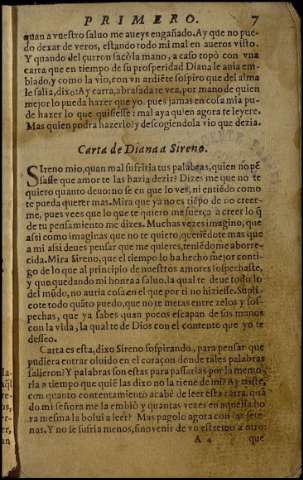 PRIMERO. 7
quan a vuestro saluo me aueys engañado. Ay que no pue-
do dexar de veros, estando todo mi mal en aueros visto.
Y quando del çurron sacò la mano, a caso topó con vna
carta que en tiempo de su prosperidad Diana le auia em-
biado, y como la vio, con vn ardiēte sospiro que del alma
le salia, dixo: Ay carta, abrasada te vea, por mano de quien
mejor lo pueda hazer que yo, pues jamas en cosa mia pu-
de hazer lo que quisiesse: mal aya quien agora te leyere.
Mas quien podra hazerlo? y descogiendola vio que dezia.
Carta de Diana a Sireno.
Sireno mio, quan mal sufriria tus palabras, quien no pē
sasse que amor te las hazia dezir? Dizes me que no te
quiero quanto deuo: no se en que lo ves, ni entiēdo como
te pueda querer mas. Mira que ya no es tiēpo de no creer-
me, pues vees que lo que te quiero me fuerça a creer lo q̃
de tu pensamiento me dizes. Muchas vezes imagino, que
assi como imaginas que no te quiero, queriēdote mas que
a mi assi deues pensar que me quieres, teniēdome aborre-
cida. Mira Sireno, que el tiempo lo ha hecho mejor conti-
go de lo que al principio de nuestros amores sospechaste,
y que quedando mi honra a saluo, la qual te deue todo lo
del mūdo, no auria cosa en el que por ti no hiziesse. Supli
cote todo quāto puedo, que no te metas entre zelos y sos-
pechas, que ya sabes quan pocos escapan de sus manos
con la vida, la qual te de Dios con el contento que yo te
desseo.
Carta es esta, dixo Sireno sospirando, para pensar que
pudiera entrar oluido en el coraçon donde tales palabras
salieron? Y palabras son estas para passarlas por la memo-
ria a tiempo que quiē las dixo no la tiene de mi? Ay triste,
con quanto contentamiento acabè de leer esta carta, quā
do mi señora me la embiò y quantas vezes en aquella ho
ra mesma la bolui a leer? Mas pagolo agora con las sete-
nas. Y no se sufria menos, sino venir de vn estremo a otro:
A 4 que